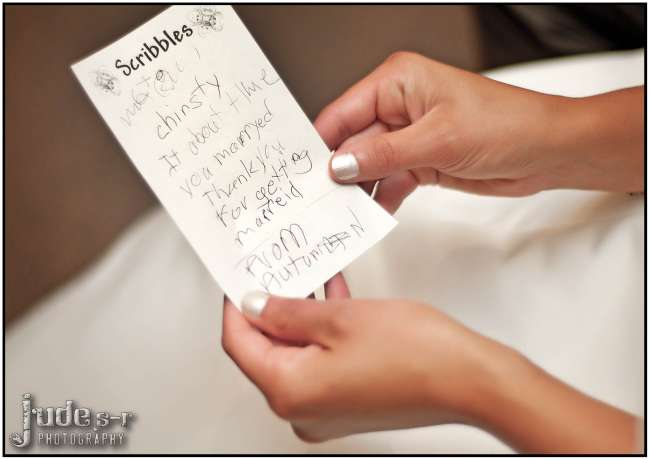 Scribbles
chirsty
It about time
you marryed
Thankyou
For getting
marreid
From
Autumn
jude s-r
PHOTOGRAPHY